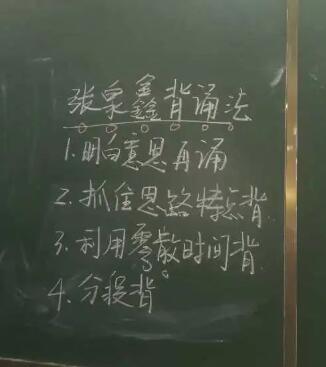 张泉鑫背诵法
1.明白意思再诵
2.抓住思路特点背
3.利用零散时间背
4.分段背